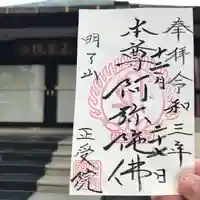 奉拝 令和三年
十二月二十七日
本尊 阿弥陀佛
明了山
正受院